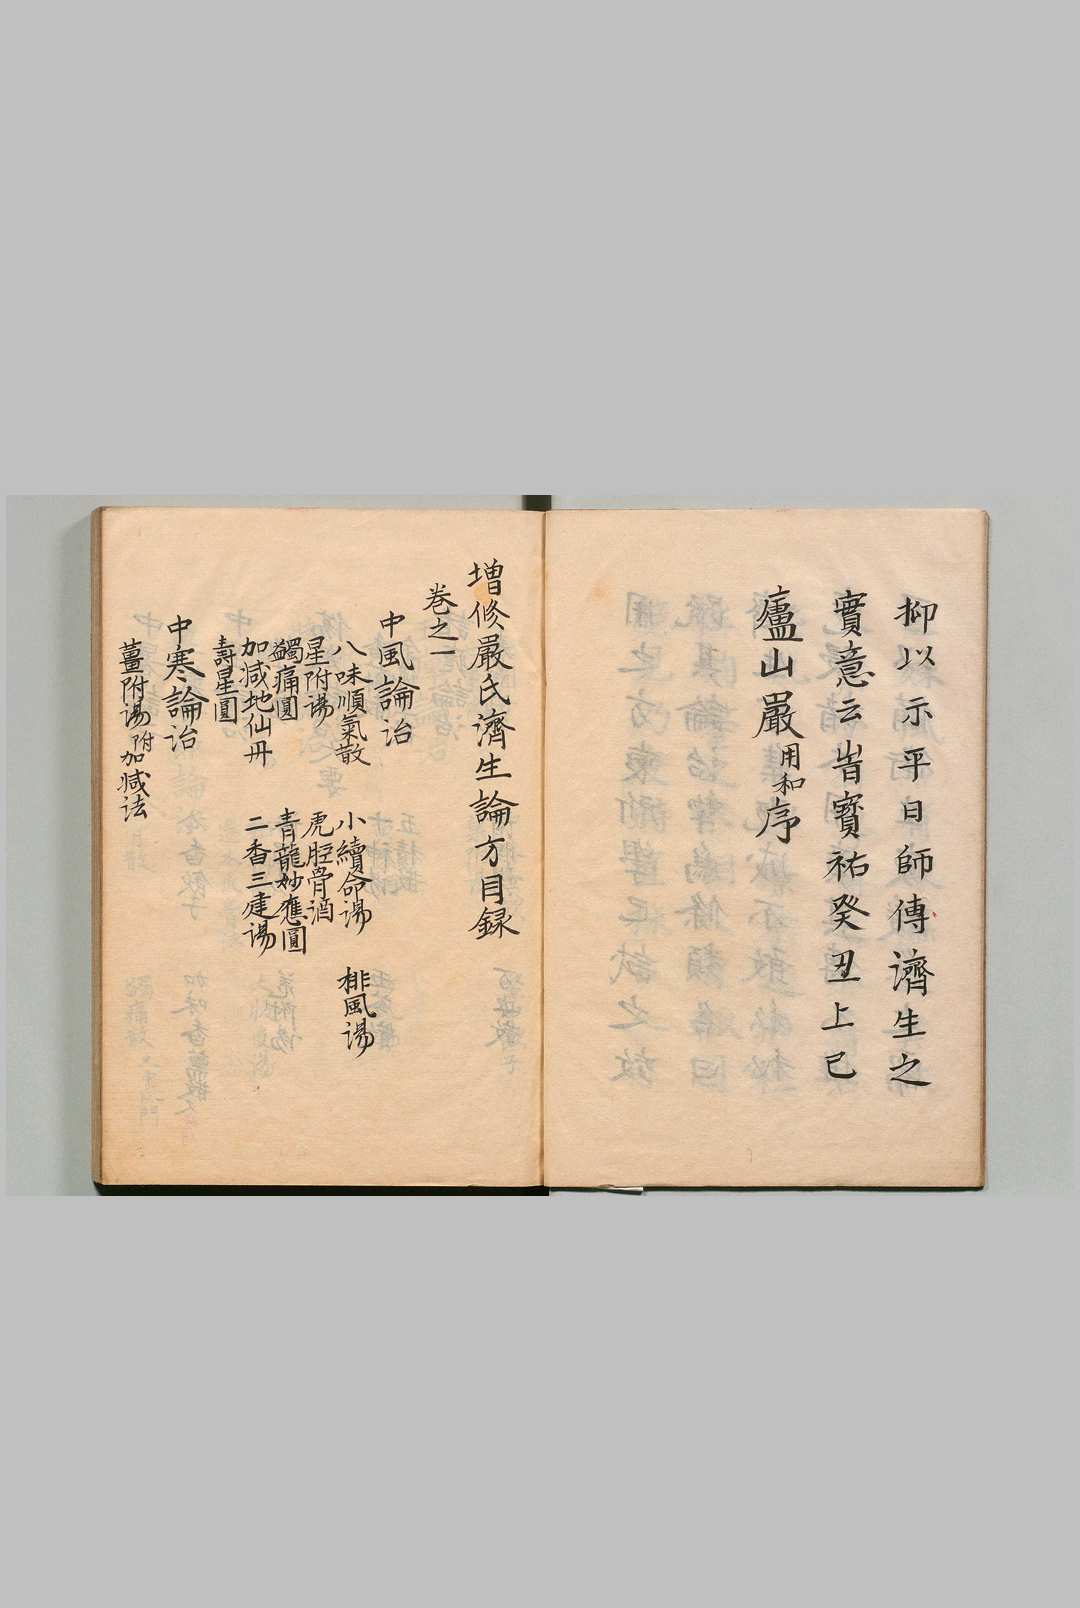 抑以示平日師傳濟生之
實意云旹寳祐癸丑上巳
廬山嚴用和序
増修嚴氏濟生論方目録
卷之一
中風論治
八味順氣散 小續命湯 排風湯
星附湯 虎脛骨酒
蠲痛圓 青龍妙應圓
加减地仙丹 二香三建湯
壽星圓
中寒論治
薑附湯附加减法